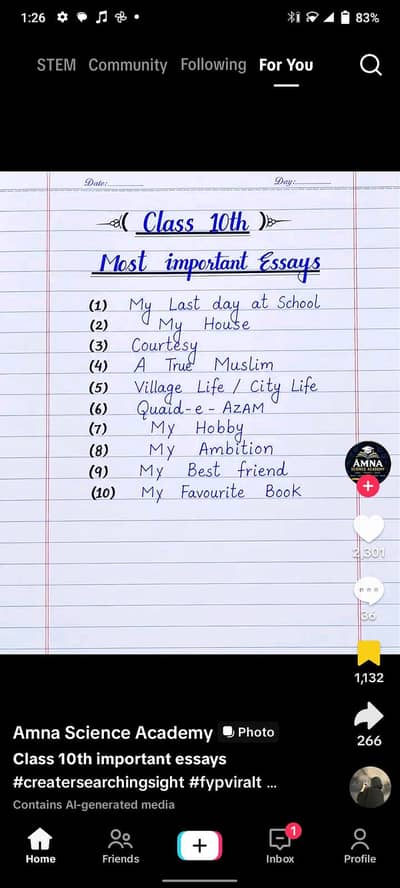 1:26 83%
STEM Community Following For You
Date: Day:
Class 10th
Most important Essays
(1) My Last day at School
(2) My House
(3) Courtesy
(4) A True Muslim
(5) Village Life / City Life
(6) Quaid-e-AZAM
(7) My Hobby
(8) My Ambition
(9) My Best friend
(10) My Favourite Book
AMNA
SCIENCE ACADEMY
2,301
36
1,132
266
Amna Science Academy Photo
Class 10th important essays
#creatersearchingsight #fypviralt ...
Contains AI-generated media
1
Home Friends Inbox Profile